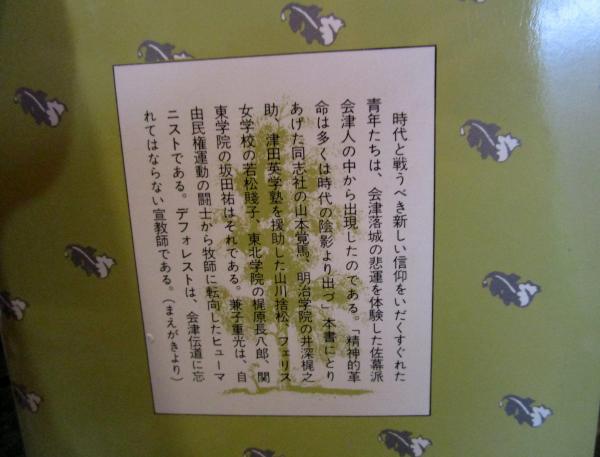 時代と戦うべき新しい信仰をいだくすぐれた
青年たちは、会津落城の悲運を体験した佐幕派
会津人の中から出現したのである。「精神的革
命は多くは時代の陰影より出づ」本書にとり
あげた同志社の山本覚馬、明治学院の井深梶之
助、津田英学塾を援助した山川捨松、フェリス
女学校の若松賤子、東北学院の梶原長八郎、関
東学院の坂田祐はそれである。兼子重光は、自
由民権運動の闘士から牧師に転向したヒューマ
ニストである。デフォレストは、会津伝道に忘
れてはならない宣教師である。(まえがきより)